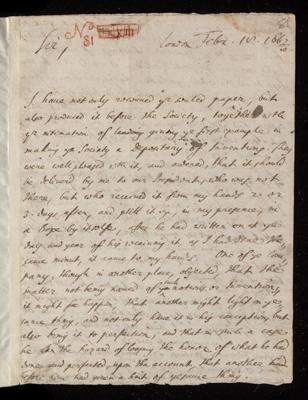 No 81
Sir,
London Febr. 10. 166
I have not only received yr sealed paper, but
also produced it before the Society, together with
yr intention of leading ym by yr first example, in
making ye Society a Depositary of Inventions. They
were well pleased with it, and ordered, that it should
be delivered by me to our President, who was not
there, but who received it from my hands 2 or
3 days after, and putt it up, in my presence, in
a Box by it selfe, after he had written on it ye
day and year of his receiving it, as I had done the
same minut, it came to my hands. One of ye Com-
pany, though in another place, objected, that the
matter not being named of your notion or Invention,
it might so happen, that another might light on ye
same thing, and not only have it in his conception, but
also bring it to perfection, and that in such a case
he ran the hazard of loosing the honor of what he had
done and perfected, upon the account, that another had
before him had given a hint of ye same thing.